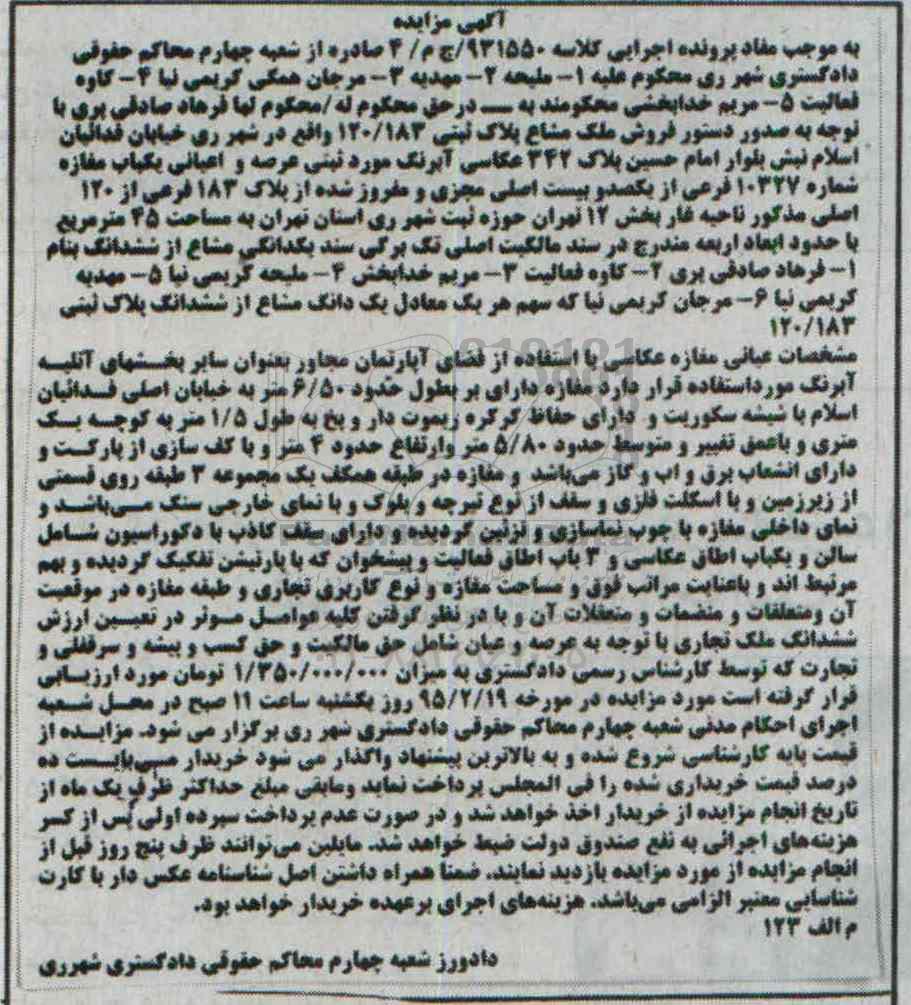 آگهی مزایده
به موجب مفاد پرونده اجرایی کلاسه ۹۳۱۵۵۰/ج م/ ۴ صادره از شعبه چهارم محاکم حقوقی
دادگستری شهر ری محکوم علیه ۱- ملیحه ۲- مهدیه ۳- مرجان همگی کریمی نیا ۴- کاوه
فعالیت ۵- مریم خدابخشی محکومند به ـــ در حق محکوم له/محکوم لها فرهاد صادقی پری با
توجه به صدور دستور فروش ملک مشاع پلاک ثبتی ۱۲۰/۱۸۳ واقع در شهر ری خیابان فدائیان
اسلام نبش بلوار امام حسین پلاک ۳۴۲ عکاسی آبرنگ مورد ثبتی عرصه و اعیانی یکباب مغازه
شماره ۱۰۳۲۷ فرعی از یکصدو بیست اصلی مجزی و مفروز شده از پلاک ۱۸۳ فرعی از ۱۲۰
اصلی مذکور ناحیه غار بخش ۱۲ تهران حوزه ثبت شهر ری استان تهران به مساحت ۴۵ مترمربع
با حدود ابعاد اربعه مندرج در سند مالکیت اصلی تک برگی سند یکدانگی مشاع از ششدانگ بنام
۱- فرهاد صادقی پری ۲- کاوه فعالیت ۳- مریم خدابخش ۴- ملیحه کریمی نیا ۵- مهدیه
کریمی نیا ۶- مرجان کریمی نیا که سهم هر یک معادل یک دانگ مشاع از ششدانگ پلاک ثبتی
۱۲۰/۱۸۳
مشخصات عیانی مغازه عکاسی با استفاده از فضای آپارتمان مجاور بعنوان سایر بخشهای آتلیه
آبرنگ مورداستفاده قرار دارد مغازه دارای بر بطول حدود ۶/۵۰ متر به خیابان اصلی فدائیان
اسلام با شیشه سکوریت و دارای حفاظ کرکره ریموت دار و پخ به طول ۱/۵ متر به کوچه یک
متری و باعمق تغییر و متوسط حدود ۵/۸۰ متر وارتفاع حدود ۴ متر و با کف سازی از پارکت و
دارای انشعاب برق و اب و گاز می‌باشد و مغازه در طبقه همکف یک مجموعه ۳ طبقه روی قسمتی
از زیرزمین و با اسکلت فلزی و سقف از نوع تیرچه و بلوک و با نمای خارجی سنگ می‌باشد و
نمای داخلی مغازه با چوب نماسازی و تزئین گردیده و دارای سقف کاذب با دکوراسیون شامل
سالن و یکباب اطاق عکاسی و ۳ باب اطاق فعالیت و پیشخوان که با پارتیشن تفکیک گردیده و بهم
مرتبط اند و باعنایت مراتب فوق و مساحت مغازه و نوع کاربری تجاری و طبقه مغازه در موقعیت
آن ومتعلقات و منضمات و متعقلات آن و با در نظر گرفتن کلیه عوامل موثر در تعیین ارزش
ششدانگ ملک تجاری با توجه به عرصه و عیان شامل حق مالکیت و حق کسب و پیشه و سرقفلی و
تجارت که توسط کارشناس رسمی دادگستری به میزان ۱/۳۵۰/۰۰۰/۰۰۰ تومان مورد ارزیابی
قرار گرفته است مورد مزایده در مورخه ۹۵/۲/۱۹ روز یکشنبه ساعت ۱۱ صبح در محل شعبه
اجرای احکام مدنی شعبه چهارم محاکم حقوقی دادگستری شهر ری برگزار می شود. مزایده از
قیمت پایه کارشناسی شروع شده و به بالاترین پیشنهاد واگذار می شود خریدار می‌بایست ده
درصد قیمت خریداری شده را فی المجلس پرداخت نماید ومابقی مبلغ حداکثر ظرف یک ماه از
تاریخ انجام مزایده از خریدار اخذ خواهد شد و در صورت عدم پرداخت سپرده اولی پس از کسر
هزینه‌های اجرائی به نفع صندوق دولت ضبط خواهد شد. مایلین می‌توانند ظرف پنج روز قبل از
انجام مزایده از مورد مزایده بازدید نمایند. ضمنا همراه داشتن اصل شناسنامه عکس دار یا کارت
شناسایی معتبر الزامی می‌باشد. هزینه‌های اجرای برعهده خریدار خواهد بود.
م الف ۱۲۳
دادورز شعبه چهارم محاکم حقوقی دادگستری شهرری